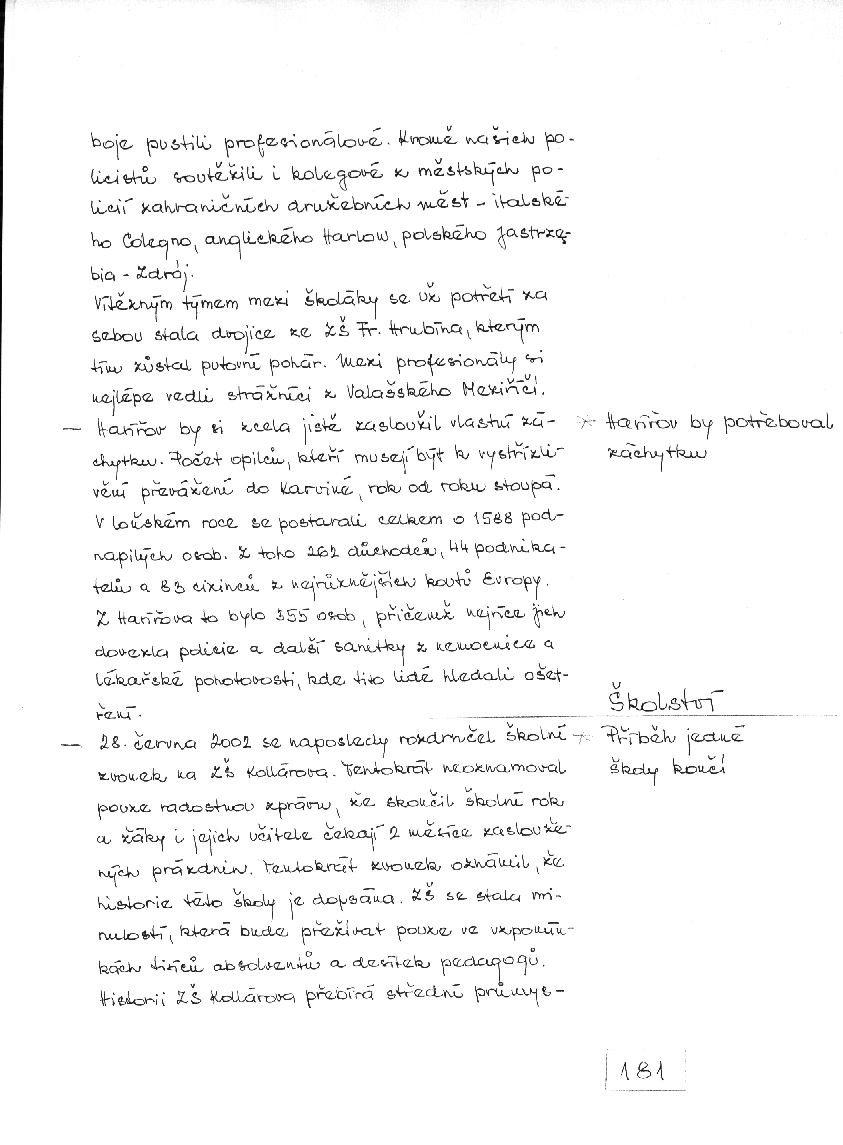 boje pustili profesionálové. Kromě našich po-
licistů soutěžili i kolegové z městských po-
licií zahraničních družebních měst - italské-
ho Colegno, anglického Harlow, polského Jastrzę-
bia - Zdrój.
Vítězným týmem mezi školáky se už potřetí za
sebou stala dvojice ze ZŠ Fr. Hrubína, kterým
tím zůstal putovní pohár. Mezi profesionály si
nejlépe vedli strážníci z Valašského Meziříčí.
— Havířov by si zcela jistě zasloužil vlastní zá-
chytku. Počet opilců, kteří musejí být k vystřízli-
vění převáženi do Karviné, rok od roku stoupá.
V loňském roce se postarali celkem o 1588 pod-
napilých osob. Z toho 262 důchodců, 44 podnika-
telů a 83 cizinců z nejrůznějších koutů Evropy.
Z Havířova to bylo 355 osob, přičemž nejvíce jich
dovezla policie a další sanitky z nemocnice a
lékařské pohotovosti, kde tito lidé hledali ošet-
ření.
* Havířov by potřeboval
záchytku
Školství
— 28. června 2002 se naposledy rozdrnčel školní
zvonek na ZŠ Kollárova. Tentokrát neoznamoval
pouze radostnou zprávu, že skončil školní rok
a žáky i jejich učitele čekají 2 měsíce zaslouže-
ných prázdnin. Tentokrát zvonek oznámil, že
historie této školy je dopsána. ZŠ se stala mi-
nulostí, která bude přežívat pouze ve vzpomín-
kách tisíců absolventů a desítek pedagogů.
Historii ZŠ Kollárova přebírá střední průmys-
* Příběh jedné
školy končí
181